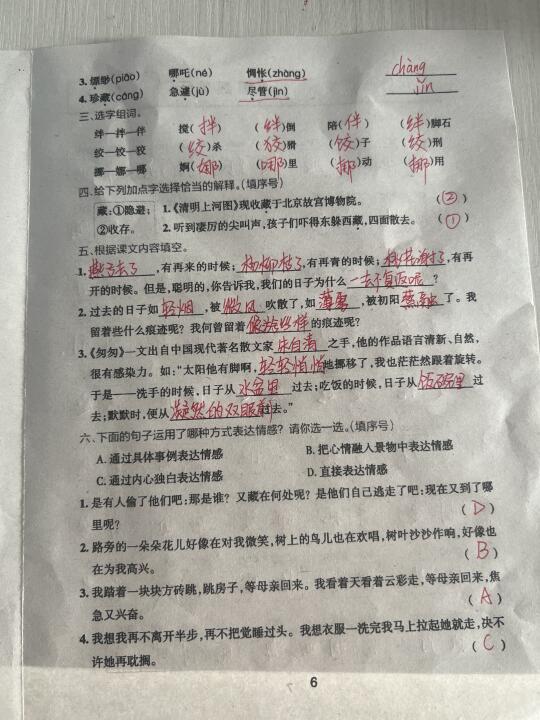 3. 缥缈(piāo) 哪吒(né) 惆怅(zhàng) chàng
4. 珍藏(cáng) 急遽(jù) 尽管(jìn) jǐn
三、选字组词。
绊—拌—伴 搅(拌) (绊)倒 陪(伴) (绊)脚石
绞—饺—狡 (绞)杀 (狡)猾 (饺)子 (绞)刑
挪—娜—哪 婀(娜) (哪)里 (挪)动 (挪)用
四、给下列加点字选择恰当的解释。(填序号)
藏:①隐避; 1.《清明上河图》现收藏于北京故宫博物院。 (②)
②收存。 2. 听到凄厉的尖叫声,孩子们吓得东躲西藏,四面散去。 (①)
五、根据课文内容填空。
1. 燕子去了,有再来的时候;杨柳枯了,有再青的时候;桃花谢了,有再
开的时候。但是,聪明的,你告诉我,我们的日子为什么一去不复返呢?
2. 过去的日子如轻烟,被微风吹散了,如薄雾,被初阳蒸融了。我
留着些什么痕迹呢?我何曾留着像游丝样的痕迹呢?
3.《匆匆》一文出自中国现代著名散文家朱自清之手,他的作品语言清新、自然,
很有感染力。如:“太阳他有脚啊,轻轻悄悄地挪移了,我也茫茫然跟着旋转。
于是——洗手的时候,日子从水盆里过去;吃饭的时候,日子从饭碗里过
去;默默时,便从凝然的双眼前过去。”
六、下面的句子运用了哪种方式表达情感?请你选一选。(填序号)
A. 通过具体事例表达情感 B. 把心情融入景物中表达情感
C. 通过内心独白表达情感 D. 直接表达情感
1. 是有人偷了他们吧:那是谁?又藏在何处呢?是他们自己逃走了吧:现在又到了哪
里呢? (D)
2. 路旁的一朵朵花儿好像在对我微笑,树上的鸟儿也在欢唱,树叶沙沙作响,好像也
在为我高兴。 (B)
3. 我踏着一块块方砖跳,跳房子,等母亲回来。我看着天看着云彩走,等母亲回来,焦
急又兴奋。 (A)
4. 我想我再不离开半步,再不把觉睡过头。我想衣服一洗完我马上拉起她就走,决不
许她再耽搁。 (C)
6